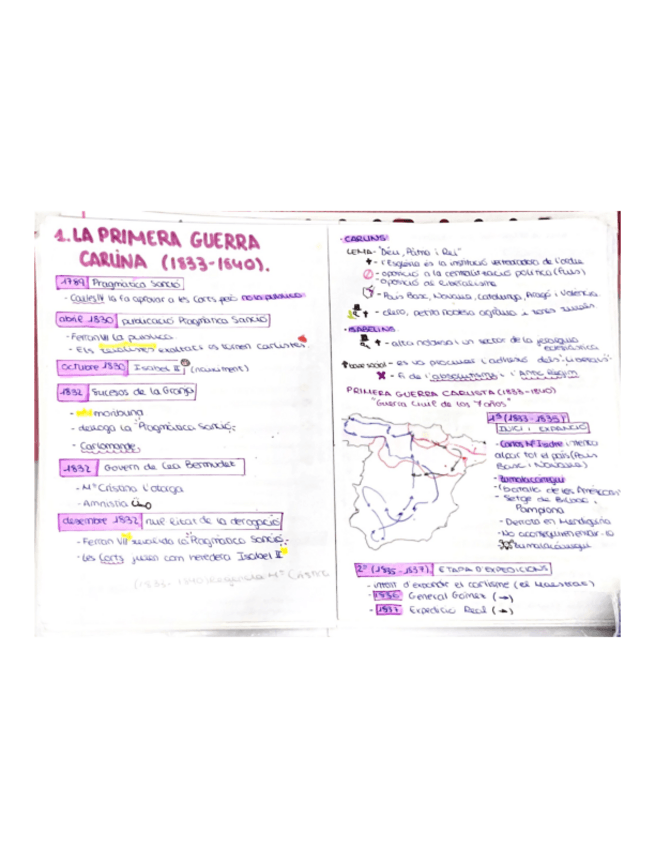 1. LA PRIMERA GUERRA
CARLINA (1833-1840).
1789 Pragmàtica Sanció
- Carles IV la fa aprovar a les Corts però no la publica
abril 1830 publicació Pragmàtica Sanció
- Ferran VII la publica
- Els realistes exaltats es tornen carlistes.
octubre 1830 Isabel II (naixement)
1832 Sucesos de la Granja
- moribund
- deroga la "Pragmàtica Sanció"
- Carlomarde
1832 Govern de Cea Bermúdez
- Mª Cristina l'otorga
- Amnistia
desembre 1832 nul·litat de la derogació
- Ferran VII revalida la "Pragmàtica Sanció"
- Les Corts juren com hereDera Isabel II
- CARLINS:
LEMA- "Déu, Pàtria i Rei"
- l'Església és la institució vertebradora de l'ordre
- oposició a la centralització política (furs)
- oposició al liberalisme
- País Basc, Navarra, Catalunya, Aragó i València
- clero, petita noblesa agrària i
- ISABELINS
- alta noblesa i un sector de la jerarquia
eclesiàstica
base social - es va procurar l'adhesió dels "liberals"
- fi de l'absolutisme i l'Antic Règim
PRIMERA GUERRA CARLISTA (1833-1840)
"Guerra Civil de los 7 años"
1ª (1833-1835)
INICI I EXPANCIÓ
- Carlos Mª Isidre i
País
Basc i Navarra)
- Zumalacárregui
- Setge de Bilbao i
Pamplona
- Derrota en Mendigorría
- No aconsegueixen entrar
Zumalacárregui
2ª (1835-1837) ETAPA D'EXPEDICIONS
- intent d'expandir el carlisme (el Maestrat)
- 1836 General Gómez (→)
- 1837 Expedició Reial (→)